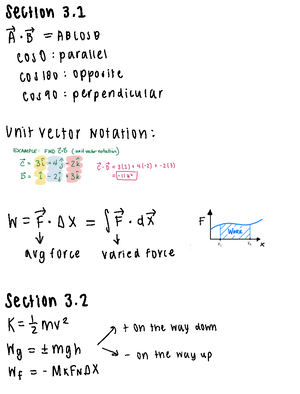 Section 3.1
A⃗ · B⃗ = ABcosθ
cos0 : parallel
cos180 : opposite
cos90 : perpendicular
Unit Vector Notation:
EXAMPLE: FIND C⃗·B⃗ (unit vector notation)
C⃗ = 3î + 4ĵ - 2k̂
C⃗·B⃗ = 3(2) + 4(-2) + -2(3)
B⃗ = î - 2ĵ + 3k̂
W = F⃗ · ΔX = ∫F⃗ · dX⃗
avg force varied force
F
Work
x
Section 3.2
K = ½mv²
+ on the way down
Wg = ±mgh
- on the way up
Wf = - MKFNΔX